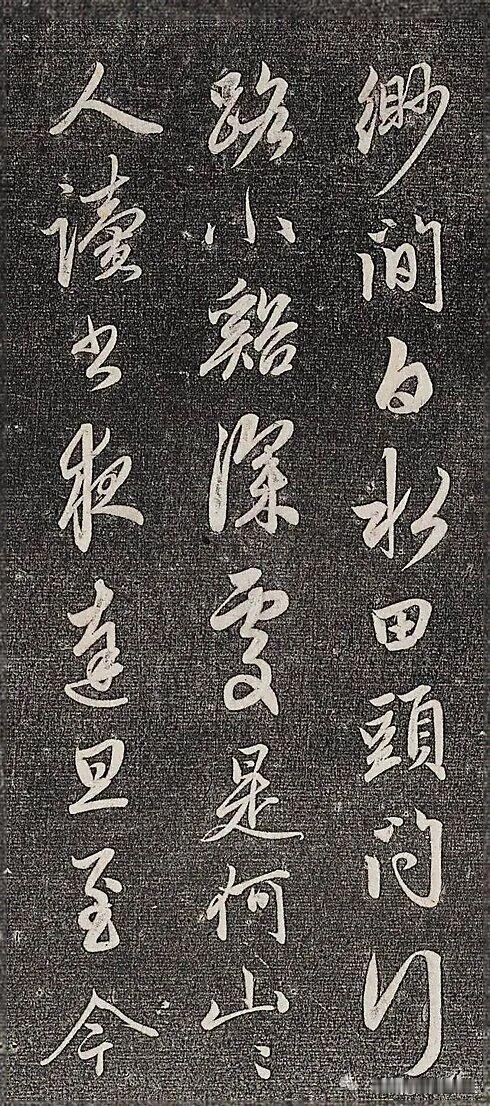 緲間白水田頭問行
路小谿深處是何山〻
人讀書夜達旦至今